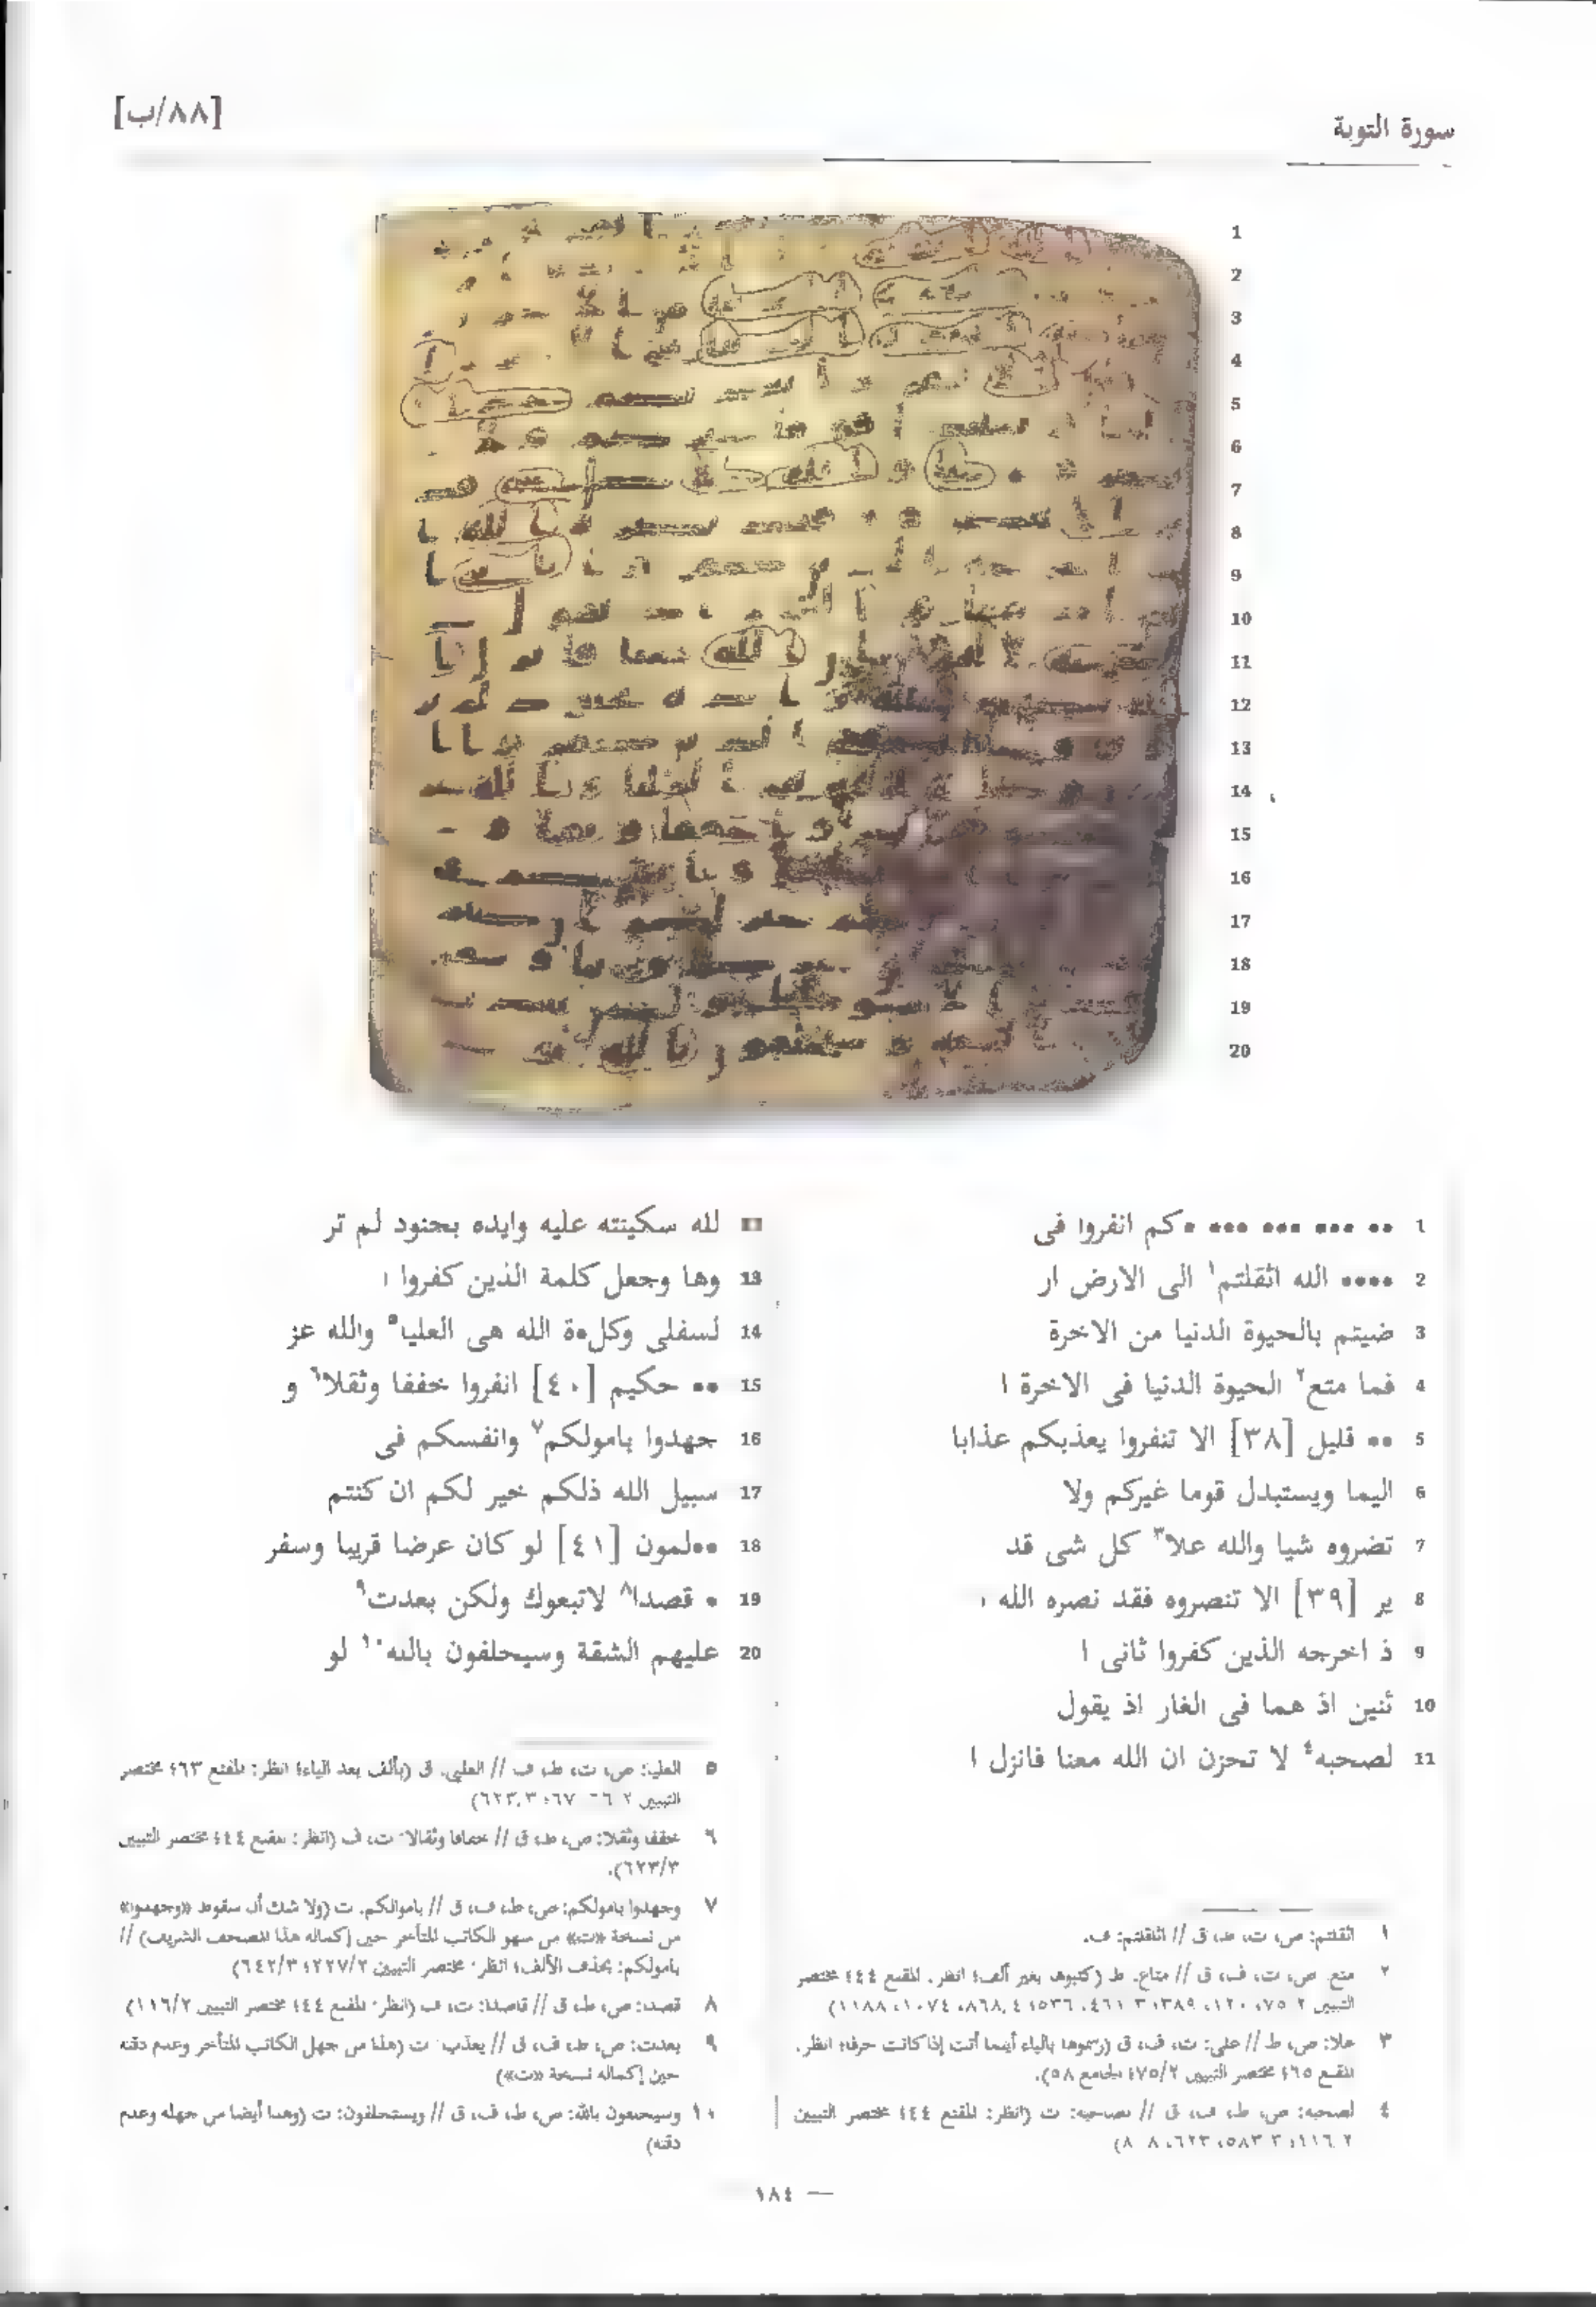 سورة التوبة
[٨٨/ب]
1
2
3
4
5
6
7
8
9
10
11
12
13
14
15
16
17
18
19
20
1 •• ••• ••• ••• ••• •كم انفروا فى
2 •••• الله اثقلتم١ الى الارض ار
3 ضيتم بالحيوة الدنيا من الاخرة
4 فما متع٢ الحيوة الدنيا فى الاخرة ا
5 •• قليل [٣٨] الا تنفروا يعذبكم عذابا
6 اليما ويستبدل قوما غيركم ولا
7 تضروه شيا والله علا٣ كل شى قد
8 ير [٣٩] الا تنصروه فقد نصره الله ا
9 ذ اخرجه الذين كفروا ثانى ا
10 ثنين اذ هما فى الغار اذ يقول
11 لصحبه٤ لا تحزن ان الله معنا فانزل ا
لله سكينته عليه وايده بجنود لم تر
13 وها وجعل كلمة الذين كفروا ا
14 لسفلى وكل•ة الله هى العليا٥ والله عز
15 •• حكيم [٤٠] انفروا خففا وثقلا٦ و
16 جهدوا بامولكم٧ وانفسكم فى
17 سبيل الله ذلكم خير لكم ان كنتم
18 ••لمون [٤١] لو كان عرضا قريبا وسفر
19 • قصدا٨ لاتبعوك ولكن بعدت٩
20 عليهم الشقة وسيحلفون بالله١٠ لو
١ اثقلتم: ص، ت، ط، ق // اثاقلتم: ف.
٢ متع: ص، ت، ف، ق // متاع. ط (كتبوها بغير ألف؛ انظر. المقنع ٤٤؛ مختصر
التبيين
٣ علا: ص، ط // على: ت، ف، ق (رسموها بالياء أينما أتت إذا كانت حرفا؛ انظر.
المقنع ٦٥؛ مختصر التبيين ٧٥/٢؛ الجامع ٥٨).
٤ لصحبه: ص، ط، ف، ق // لصاحبه: ت (انظر: المقنع ٤٤؛ مختصر التبيين
٥ العليا: ص، ت، ط، ف // العلى. ق (بألف بعد الياء؛ انظر: المقنع ٦٣؛ مختصر
التبيين
٦ خففا وثقلا: ص، ط، ق // خفافا وثقالا: ت، ف (انظر: المقنع ٤٤؛ مختصر التبيين
٦٢٣/٣).
٧ وجهدوا بامولكم: ص، ط، ف، ق // باموالكم. ت (ولا شك أن سقوط «وجهدوا»
من نسخة «ت» من سهو الكاتب المتأخر حين إكماله هذا المصحف الشريف) //
بامولكم: بحذف الألف؛ انظر: مختصر التبيين ٢٢٧/٢؛ ٦٤٢/٣)
٨ قصدا: ص، ط، ق // قاصدا: ت، ف (انظر: المقنع ٤٤؛ مختصر التبيين ١١٦/٢)
٩ بعدت: ص، ط، ف، ق // يعذب: ت (هذا من جهل الكاتب المتأخر وعدم دقته
حين إكماله نسخة «ت»)
١٠ وسيحلفون بالله: ص، ط، ف، ق // ويستحلفون: ت (وهذا أيضا من جهله وعدم
دقته)
— ١٨٤